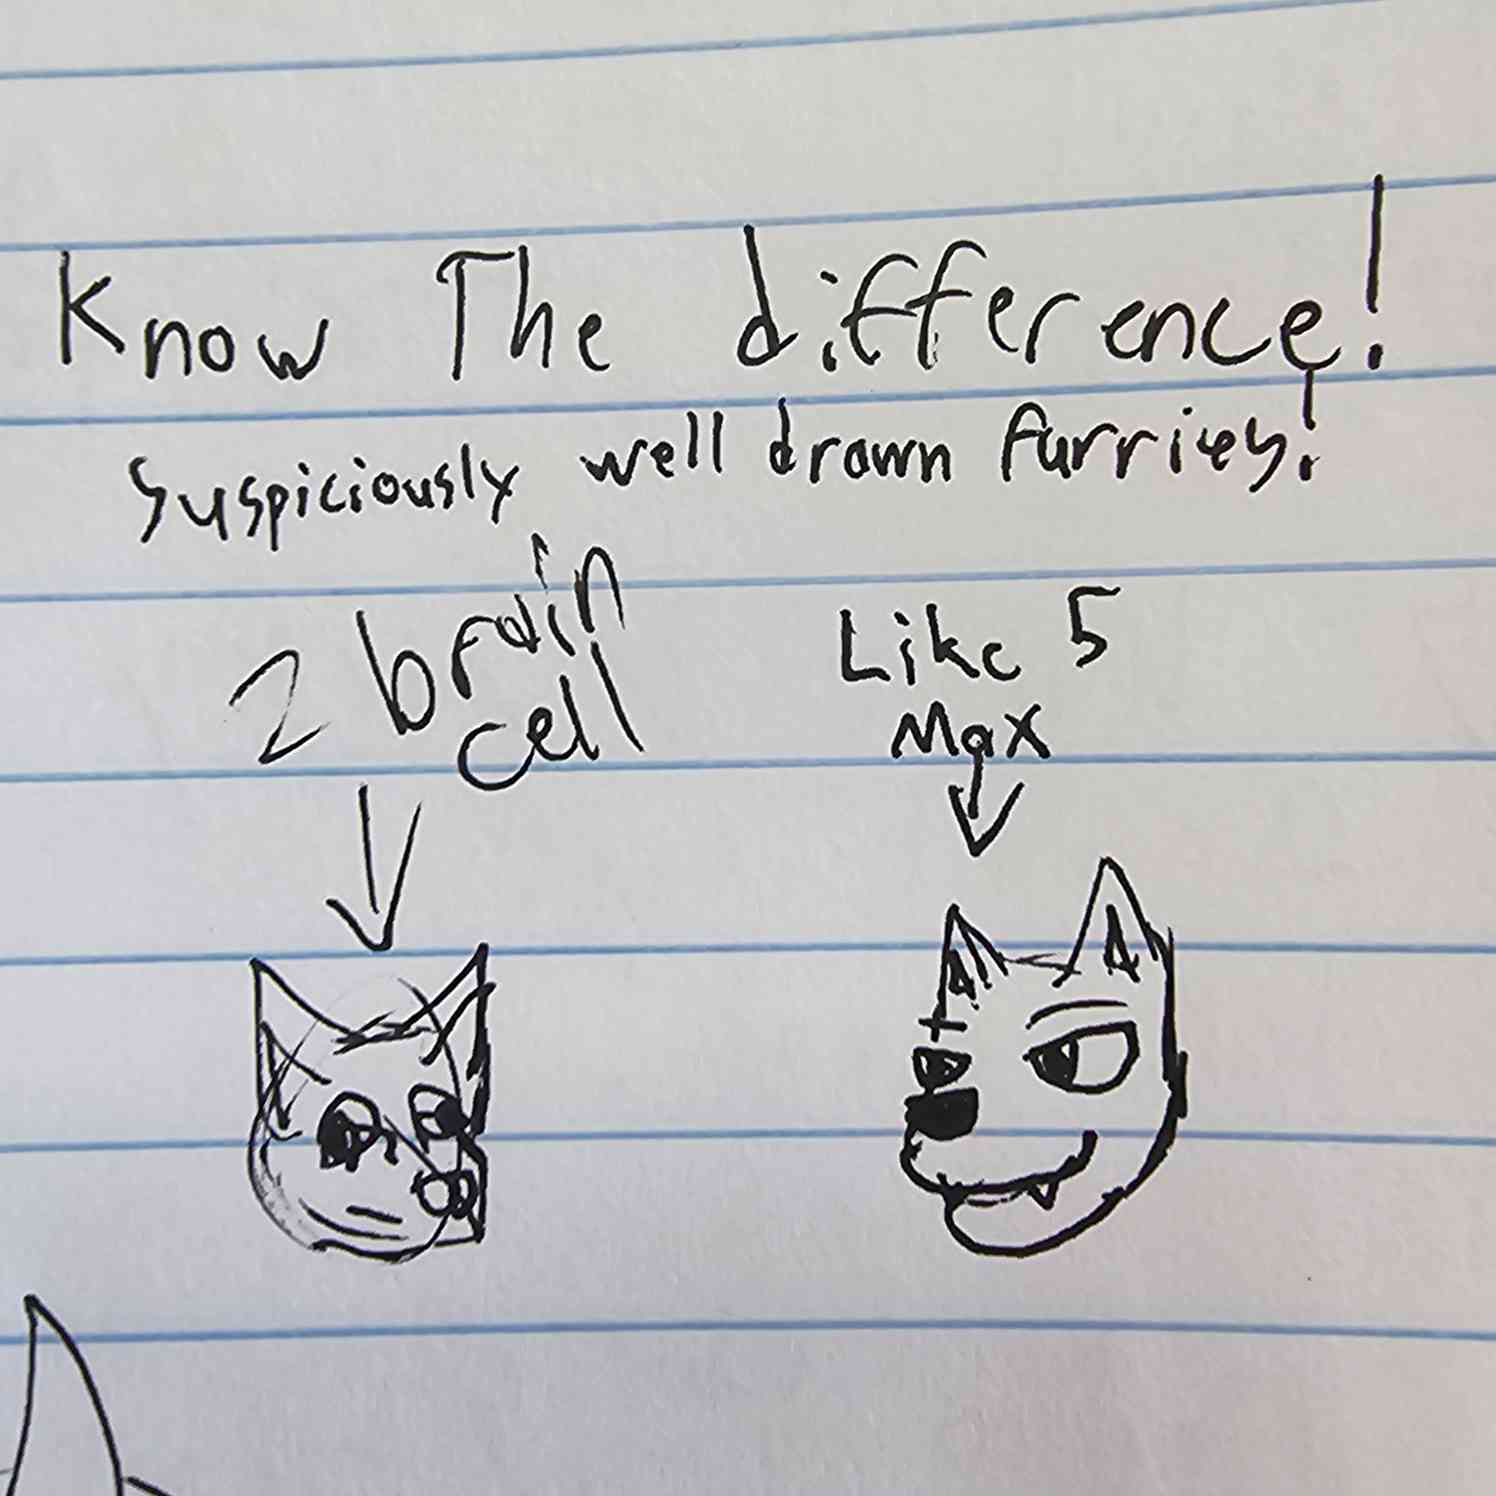 Know The difference!
Suspiciously well drawn furries!
2 brain
cell
Like 5
Max